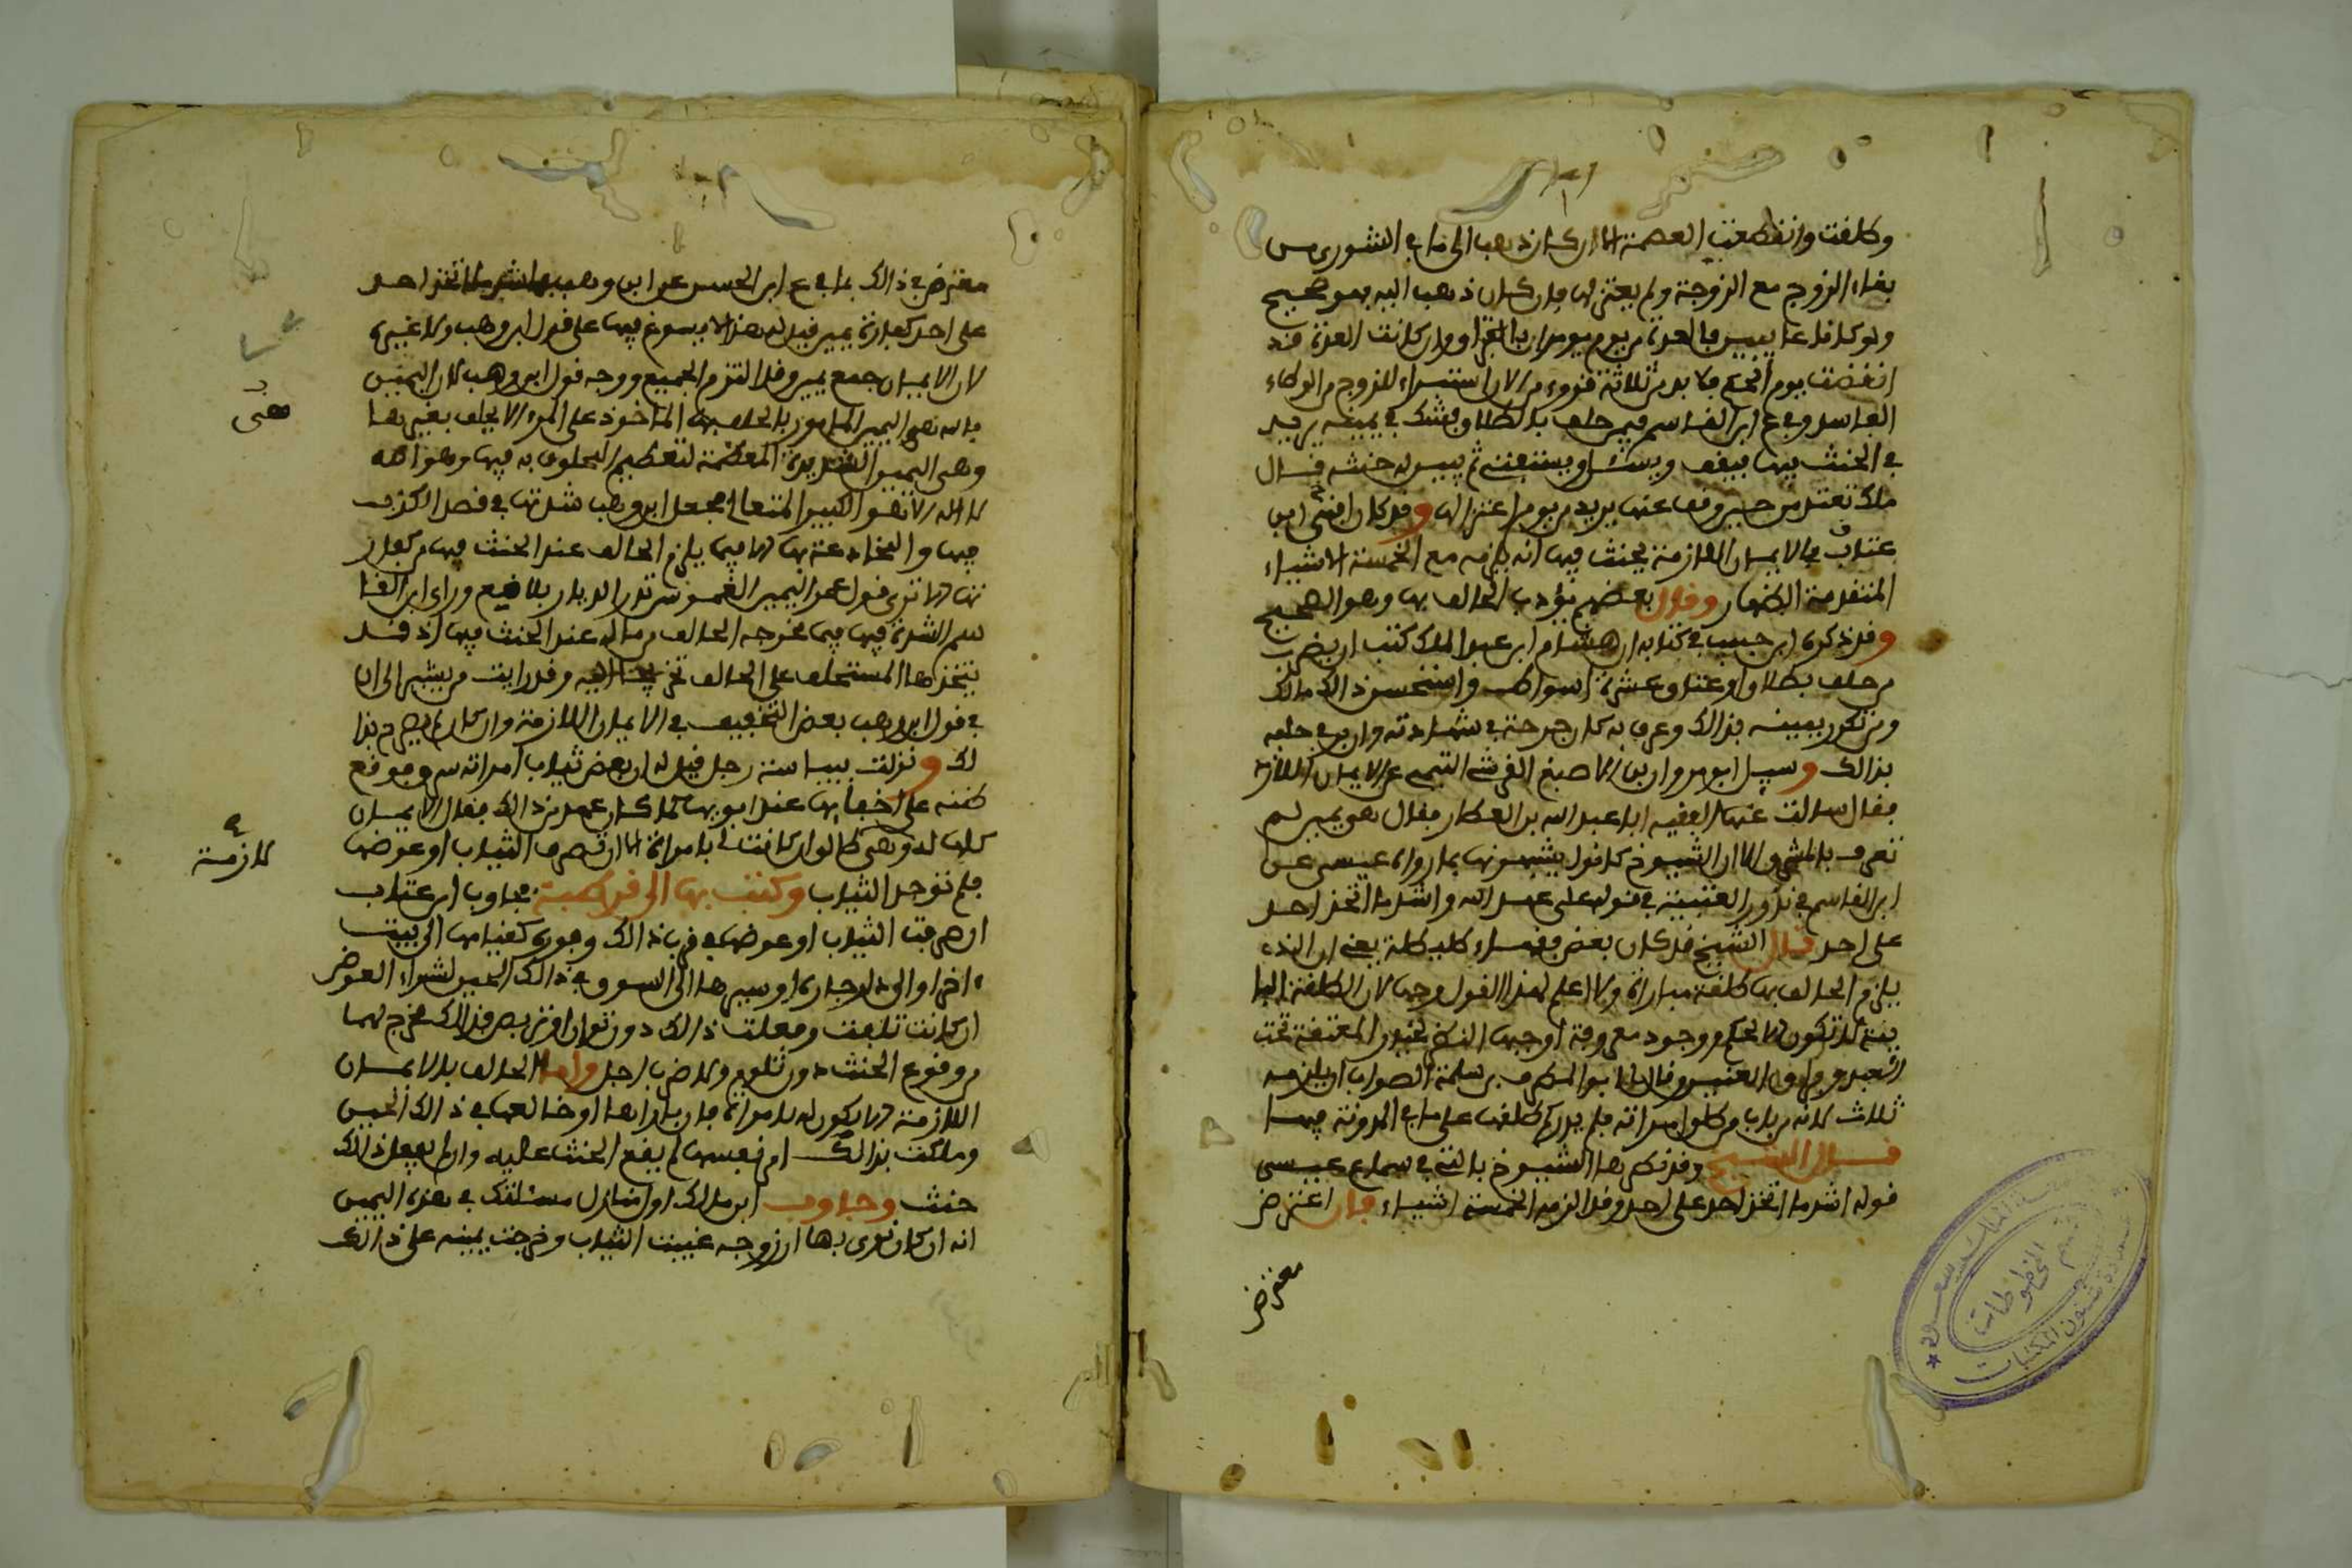 وطلقت وانقطعت العصمة الا ان كان ذهب الى ما في الشورى من
بقاء الزوج مع الزوجة ولم يعتزلها فان كان ذهب اليه فهو صحيح
ولو كانا غايبين فالعدة من يوم
انقضت يوم الحكم فلا بد من ثلاثة قروء من الان استبراء للزوج من الوطء
الفاسد وفي ع ابن القاسم فيمن حلف بالطلاق فشك في يمينه يريد
في الحنث فيها فيقف ويسئل ويستفتى ثم يتبين له حنثه قال
ملك تعتد من حين وقف عنها يريد من يوم اعتزالها وقد كان افتى ابن
عتاب في الايمان اللازمة يحنث فيها انه يلزمه مع الخمسة الاشياء
المتقدمة الظهار وقال بعضهم يؤدب الحالف بها وهو الصحيح
وقد ذكر ابن حبيب في كتابه ان هشام ابن عبد الملك كتب ان يضرب
من حلف بطلاق او عتاق عشرة اسواط واستحسن ذالك مالك
ومن تكرر يمينه بذالك وعرف به كان جرحة في شهادته وان بر في حلفه
بذالك وسيل ابو مروان بن الاصبغ القرشي عن الايمان اللازمة
فقال سالت عنها الفقيه ابا عبد الله بن العطار فقال هي يمين لم
تعرف بالمشرق الا ان الشيوخ كانوا يشبهونها بما رواه عيسى عن
ابن القاسم في نذور العتبية في قوله على عهد الله واشد ما اتخذ احد
على احد قال الشيخ قد كان بعض فقهاء طليطلة يفتي ان الذي
يلزم الحالف بها طلقة مباراة ولا اعلم لهذا القول وجها لان الطلقة البا
ينة لا تكون الا لحكم ووجود معروفة اوجبها
العبد وفراق العنين وقال لنا ابو المطرف بن سلمة الصواب ان يلزمه
ثلاث لانه من باب من طلق امراته فلم يدر كم طلقها على ما في المدونة فيها
قال الشيخ وقد تظاهر الشيوخ بالتي في سماع عيسى
قوله اشد ما اتخذ احد على احد وقد الزمه الخمسة اشياء فان اعترض
معترض
معترض في ذالك بما في ع ابن الحسن عن ابن وهب في اشد ما اتخذ احد
على احد كفارة يمين قيل له هذا لا يسوغ فيها على قول ابن وهب ولا غيره
لان الايمان جمع يمين وقد التزم الجميع ووجه قول ابن وهب لان اليمين
بالله هي اليمين المامور بالحلف بها الماخوذ على المرء الا يحلف بغيرها
هي
وهي اليمين الشديدة المعظمة لتعظيم المحلوف به فيها وهو الله
لا اله الا هو الكبير المتعال فجعل ابن وهب شدتها في قصد الكذب
فيها والمخادعة بها لا فيما يلزم الحالف عند الحنث فيها من كفار
تها الا ترى قول عمر اليمين الغموس تدر الديار بلاقع وراى ابن القا
سم الشدة فيها فيما يخرجه الحالف من ماله عند الحنث فيها اذ قد
يتخذها المستحلف على الحالف وقد رايت من يشير الى ان
في قول ابن وهب بعض التخفيف في الايمان اللازمة وان كان لم يصرح بذا
لك ونزلت بيباسة رجل قيل له ان بعض ثياب امراته سرق فوقع
ظنه على اخفايها عند ابويها لما كان عهد من ذالك فقال الايمان
لازمة
كلها له وهي طالق ان كانت لى بامراة الا ان تصرف الثياب او عوضها
فلم توجد الثياب وكتب بها الى قرطبة فجاوب ابن عتاب
ان صرفت الثياب او عوضها في قرب ذالك وفوره كقيامها الى بيت
اخر او الى دار جاره او سيرها الى السوق في ذالك الحين لشراء العوض
ان كانت تلفت وفعلت ذالك دون توان
من وقوع الحنث دون تلوم ولا ضرب اجل واما الحالف بالايمان
اللازمة الا يكون له بامراة فان باراها او خالعها في ذالك الحين
وملكت بذالك امر نفسها لم يقع الحنث عليه وان لم يفعل ذالك
حنث وجاوب ابن مالك اول مسئلتك في هذه اليمين
انه ان كان نوى بها ان زوجه غيبت الثياب وخرجت يمينه على ذالك